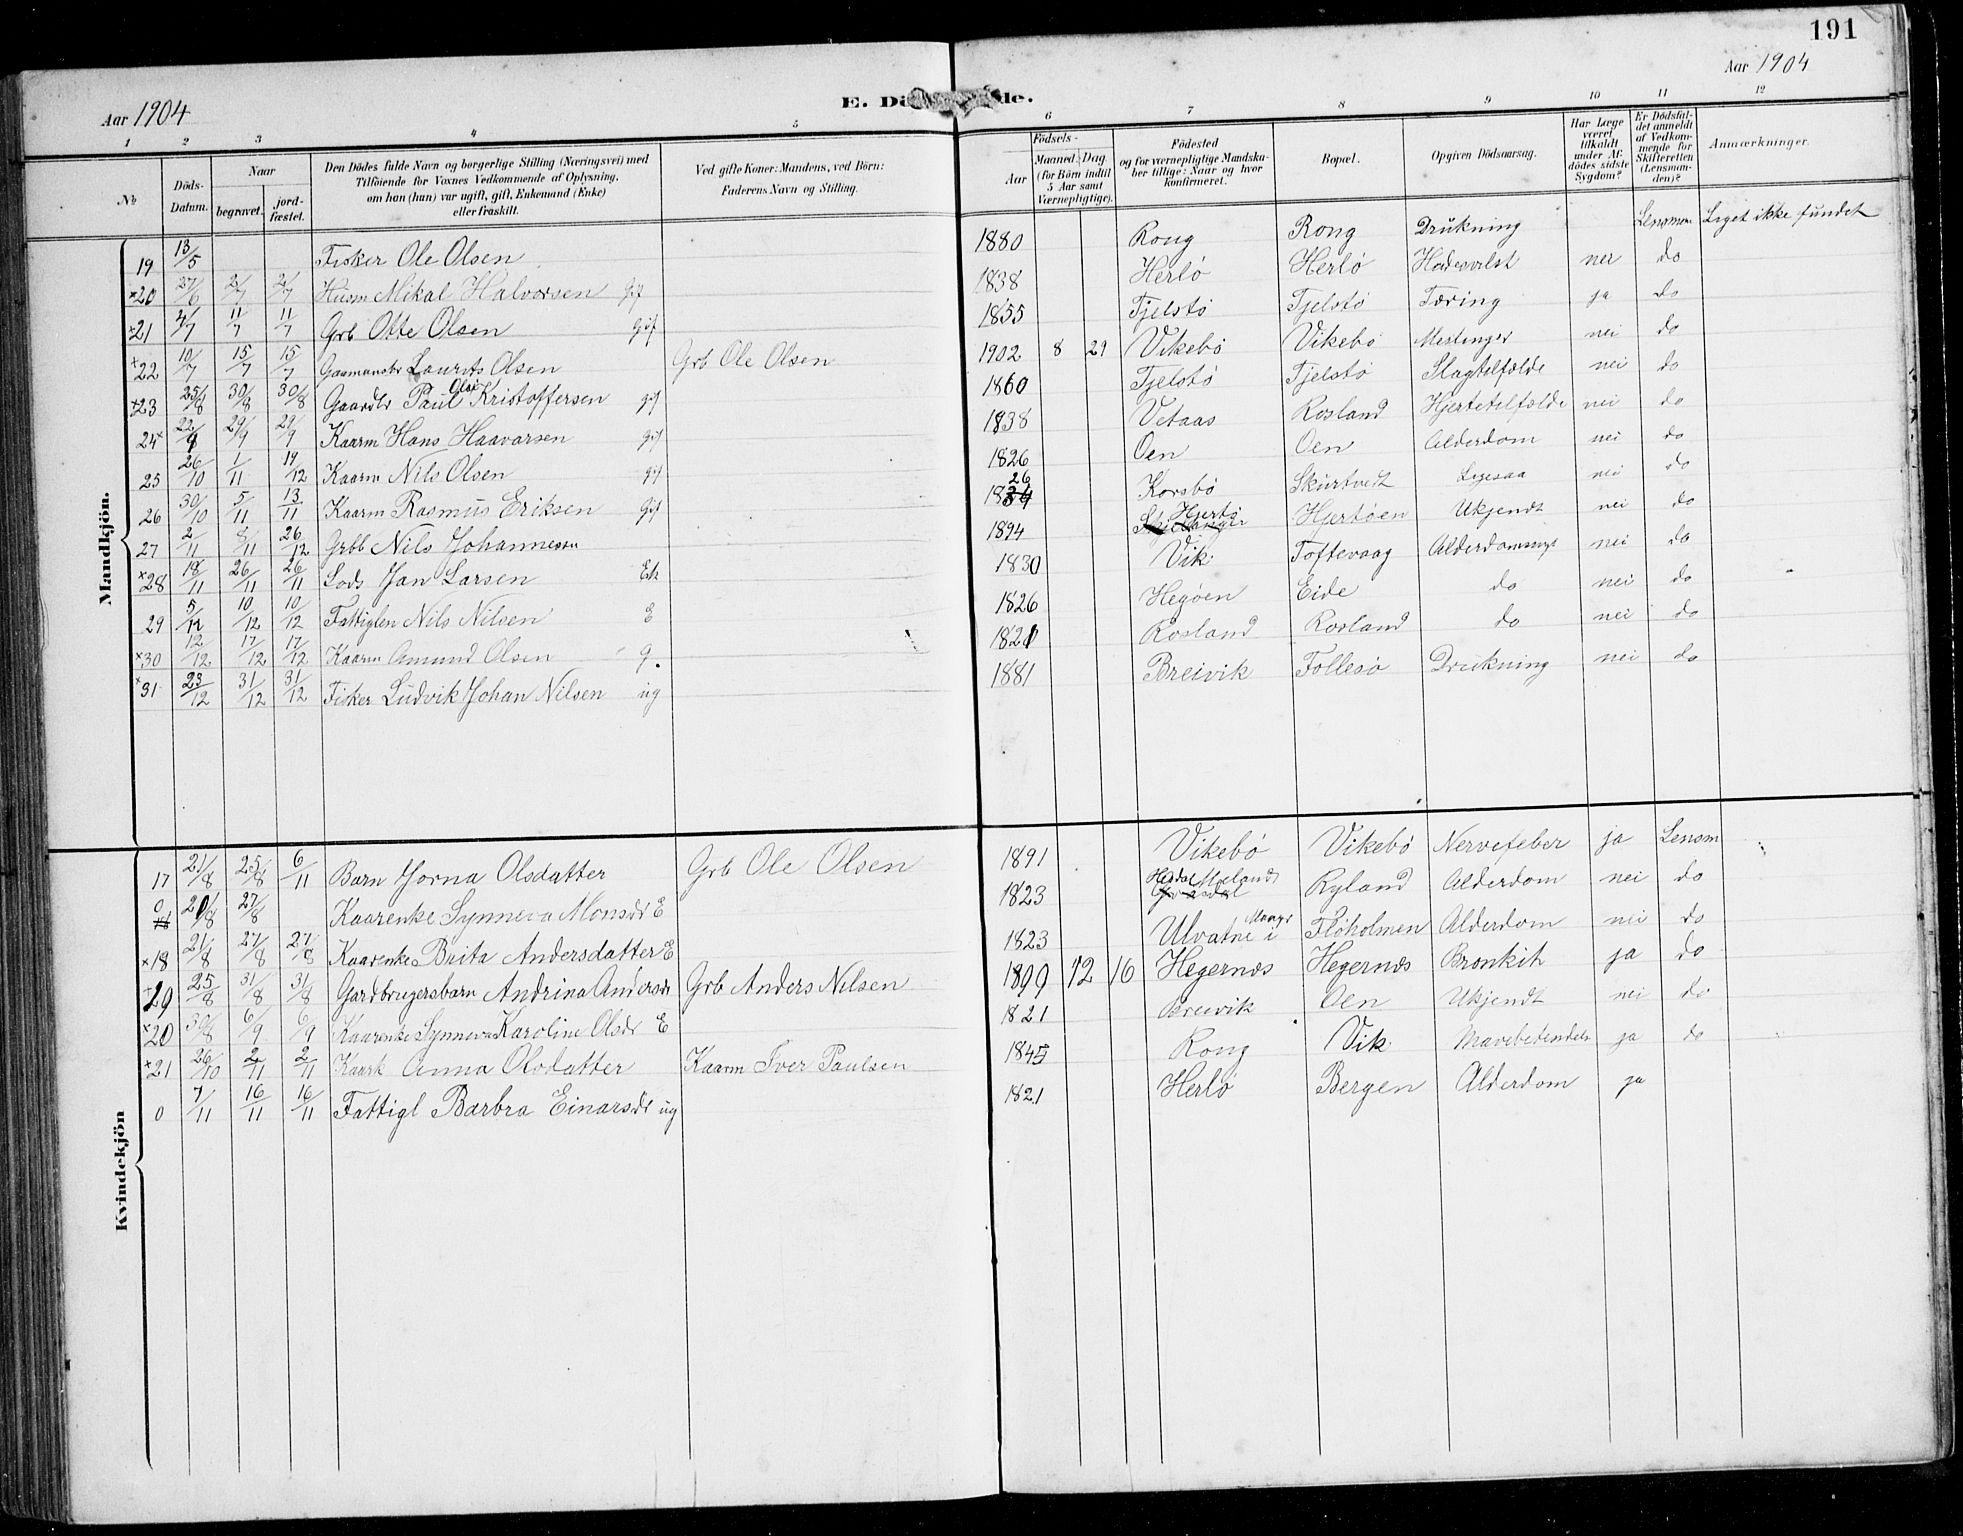 191
Aar 1904
E. Dö de.
Aar 1904
1 2 3 4 5 6 7 8 9 10 11 12
№
Döds-Datum.
Naar
begravet.
jord-fæstet.
Den Dödes fulde Navn og borgerlige Stilling (Næringsvei) med Tilföiende for Voxnes Vedkommende af Oplysning, om han (hun) var ugift, gift, Enkemand (Enke) eller fraskilt.
Ved gifte Koner: Mandens, ved Börn: Faderens Navn og Stilling.
Födsels-
Aar
Maaned. Dag. (for Börn indtil 5 Aar samt Værnepligtige).
Födested og for værnepligtige Mandskaber tillige: Naar og hvor konfirmeret.
Bopæl.
Opgiven Dödsaarsag.
Har Læge været tilkaldt under Afdödes sidste Sygdom?
Er Dödsfaldet anmeldt af Vedkommende for Skifteretten (Lensmanden)?
Anmærkninger.
Mandkjön.
19 13/5 Fisker Ole Olsen 1880 Rong Rong Drukning Lensman Liget ikke fundet
×20 27/6 2/7 2/7 Husm Mikal Halvorsen Gif 1838 Herlö Herlö nei do
×21 4/7 11/7 11/7 Grb Otte Olsen gif 1855 Tjelstö Tjelstö Tæring ja do
×22 10/7 15/7 15/7 Laurits Olsen Grb Ole Olsen 1902 8 29 Vikebö Vikebö Meslinger nei do
×23 25/8 30/8 30/8 Gaardbr Paul Olai Kristoffersen gif 1860 Tjelstö Tjelstö Slagtilfælde nei do
24× 22/9 29/9 29/9 Kaarm Hans Haavarsen gif 1838 Vetaas Rosland Hjertetilfælde nei do
25 26/10 1/11 19/12 Kaarm Nils Olsen gif 1826 Oen Oen Alderdom nei do
26 30/10 5/11 13/11 Kaarm Rasmus Eriksen Gif 1834 26 Korsbö Skurtveit nei do
27 2/11 8/11 26/12 Grbb Nils Johannesen 1894 Hjertö Hjertöen Ukjendt nei do
×28 18/11 26/11 26/11 Lods Jan Larsen Ek 1830 Vik Toftevaag nei do
29 5/12 10/12 10/12 Fattiglem Nils Nilsen E 1826 Hegöen Eide do nei do
×30 12/12 17/12 17/12 Kaarm Amund Olsen g. 1821 Rosland Rosland do nei do
×31 23/12 31/12 31/12 Fisker Ludvik Johan Nilsen ug 1881 Breivik Follesö Drukning nei do
Kvindekjön
17 21/8 25/8 6/11 Barn Jorna Olsdatter Grb Ole Olsen 1891 Vikebö Vikebö Nervefeber ja Lensm
0 20/8 27/8 Kaarenke Synneva Monsdr E 1823 Meland Ryland Alderdom nei do
×18 21/8 27/8 27/8 Kaarenke Brita Andersdatter E 1823 Ulvatne i Mangr Flöholmen Alderdom nei do
×19 25/8 31/8 31/8 Gardbrugersbarn Andrina Andersdr Grb Anders Nilsen 1899 12 16 Hegernæs Hegernæs Bronkit ja do
×20 30/8 6/9 6/9 Kaarenke Synneva Karoline Olsdr E 1821 Breivik Oen Ukjendt nei do
×21 26/10 2/11 2/11 Kaark Anna Olsdatter Kaarm Iver Paulsen 1845 Rong Vik Mavebetendelse ja do
0 7/11 16/11 16/11 Fattigl Barbra Einarsdr ug 1821 Herlö Bergen Alderdom ja